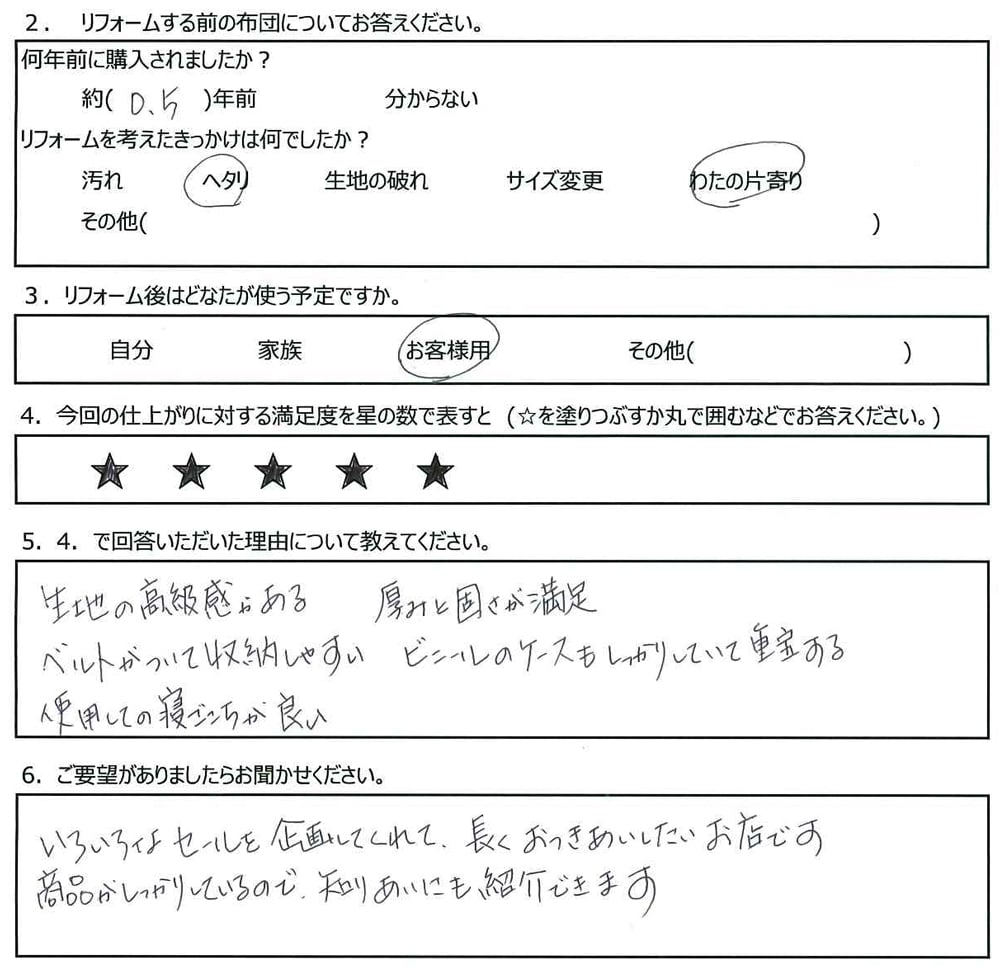 ２．　リフォームする前の布団についてお答えください。
何年前に購入されましたか？
約( 0.5 )年前　　分からない
リフォームを考えたきっかけは何でしたか？
汚れ　ヘタリ　生地の破れ　サイズ変更　わたの片寄り
その他(　　)
３．リフォーム後はどなたが使う予定ですか。
自分　家族　お客様用　その他(　　)
4．今回の仕上がりに対する満足度を星の数で表すと（☆を塗りつぶすか丸で囲むなどでお答えください。)
★ ★ ★ ★ ★
5．4．で回答いただいた理由について教えてください。
生地の高級感がある　厚みと固さが満足
ベルトがついて収納しやすい　ビニールのケースもしっかりしていて重宝する
使用しての寝ごこちが良い
6．ご要望がありましたらお聞かせください。
いろいろなセールを企画してくれて、長くおつきあいしたいお店です
商品がしっかりしているので、知りあいにも紹介できます